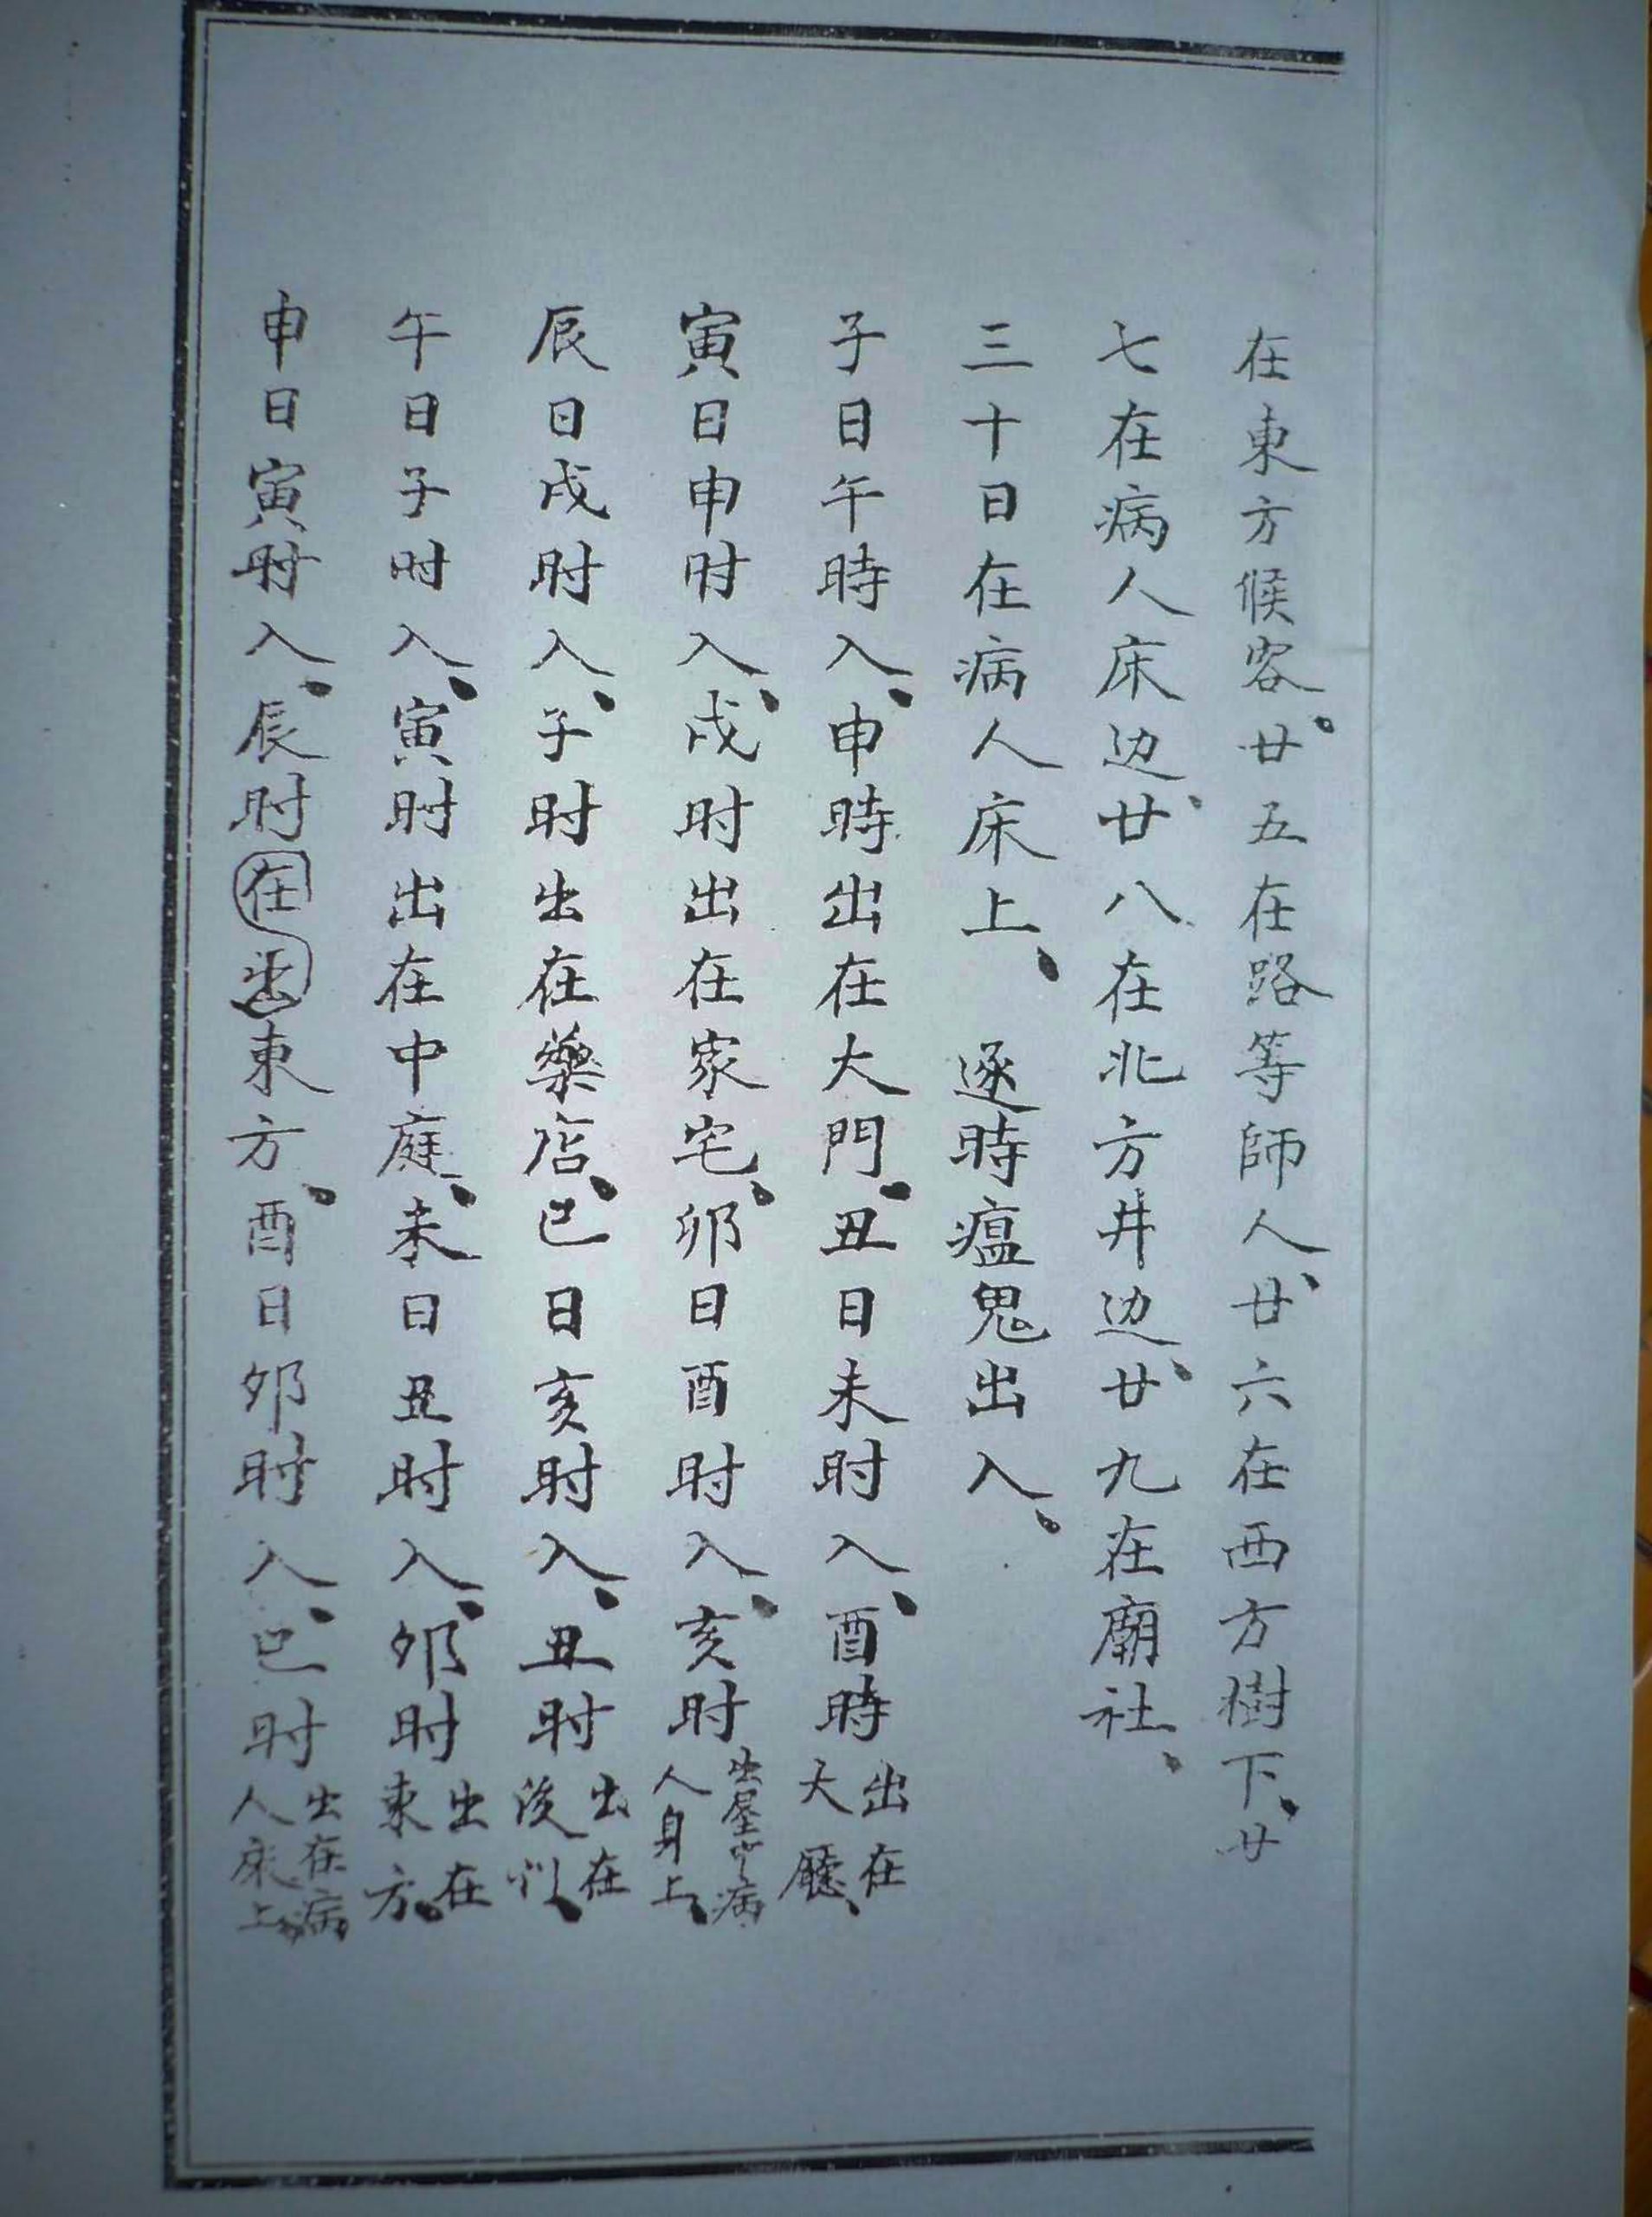 在東方候客。廿五在路等師人、廿六在西方樹下、廿
七在病人床边、廿八在北方井边、廿九在廟社、
三十日在病人床上、 逐時瘟鬼出入、
子日午時入、申時出在大門、丑日未时入、酉時出在大廳、
寅日申时入、戌时出在家宅、卯日酉时入、亥时出屋病人身上、
辰日戌时入、子时出在藥店、巳日亥时入、丑时出在後、
午日子时入、寅时出在中庭、未日丑时入、卯时出在東方、
申日寅时入、辰时在出東方、酉日卯时入、巳时出在病人床上